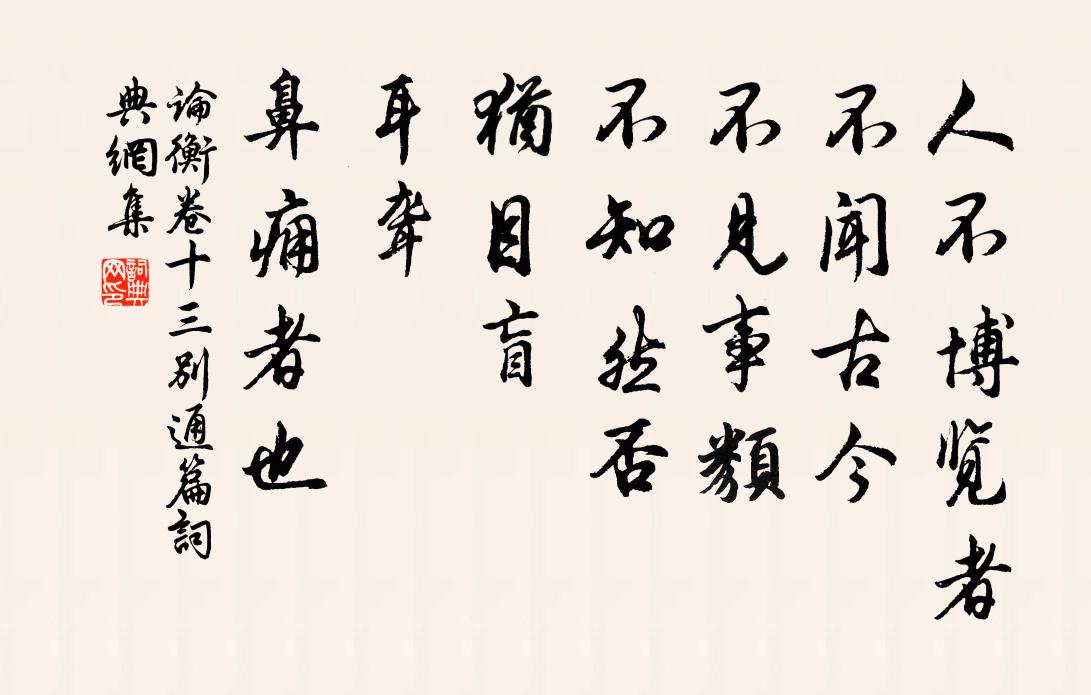 人不博览者
不闻古今
不见事類
不知然否
猶目盲
耳聋
鼻痈者也
論衡卷十三别通篇詞
典網集
詞典
网印